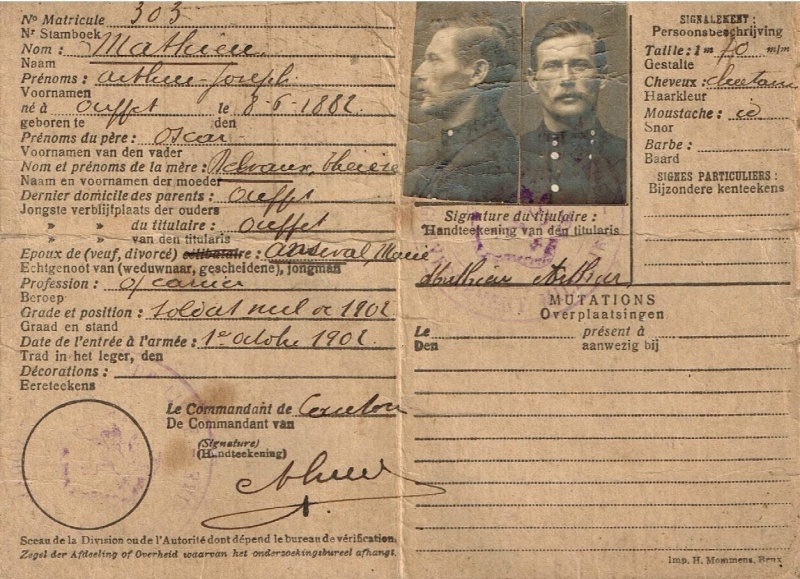 No Matricule 303
Nr Stamboek
Nom : Mathieu
Naam
Prénoms : Arthur-Joseph
Voornamen
né à Ouffet le 8-6-1882
geboren te den
Prénoms du père : Oscar
Voornamen van den vader
Nom et prénoms de la mère : Delvaux, Thérèse
Naam en voornamen der moeder
Dernier domicile des parents : Ouffet
Jongste verblijfplaats der ouders
» » du titulaire : Ouffet
» » van den titularis
Epoux de (veuf, divorcé) célibataire : Marie
Echtgenoot van (weduwnaar, gescheidene), jongman
Profession :
Beroep
Grade et position : Soldat mil de 1902
Graad en stand
Date de l'entrée à l'armée : 1er octobre 1902
Trad in het leger, den
Décorations :
Eereteekens
Le Commandant de
De Commandant van
(Signature)
(Handteekening)
Sceau de la Division ou de l'Autorité dont dépend le bureau de vérification.
Zegel der Afdeeling of Overheid waarvan het onderzoekingsbureel afhangt.
SIGNALEMENT :
Persoonsbeschrijving
Taille : 1m 70 m/m
Gestalte
Cheveux : chatain
Haarkleur
Moustache : id
Snor
Barbe :
Baard
SIGNES PARTICULIERS :
Bijzondere kenteekens
Signature du titulaire :
Handteekening van den titularis
Mathieu Arthur
MUTATIONS
Overplaatsingen
Le présent à
Den aanwezig bij
Imp. H. Mommens, Brux